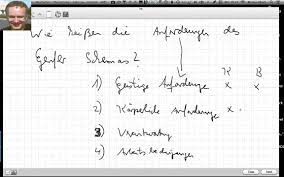 Wie heißen die Anforderungen des
Genfer Schemas?
K B
1) Geistige Anforderunge x x
2) Körperliche Anforderunge x
3) Verantwortung
4) Arbeitsbedingungen